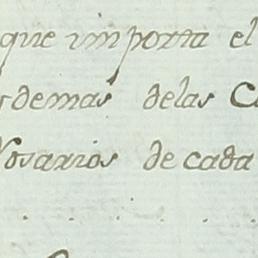 que importa el
demas delas
Rosarios de cada